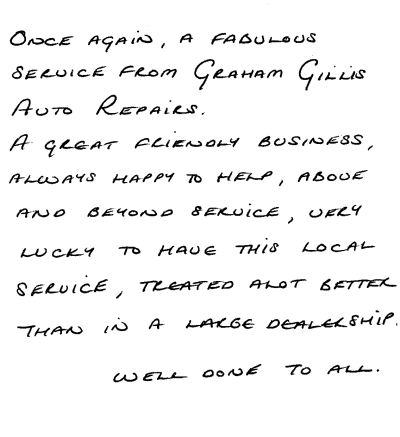 ONCE AGAIN, A FABULOUS
SERVICE FROM GRAHAM GILLIS
AUTO REPAIRS.
A GREAT FRIENDLY BUSINESS,
ALWAYS HAPPY TO HELP, ABOVE
AND BEYOND SERVICE, VERY
LUCKY TO HAVE THIS LOCAL
SERVICE, TREATED ALOT BETTER
THAN IN A LARGE DEALERSHIP.
WELL DONE TO ALL.